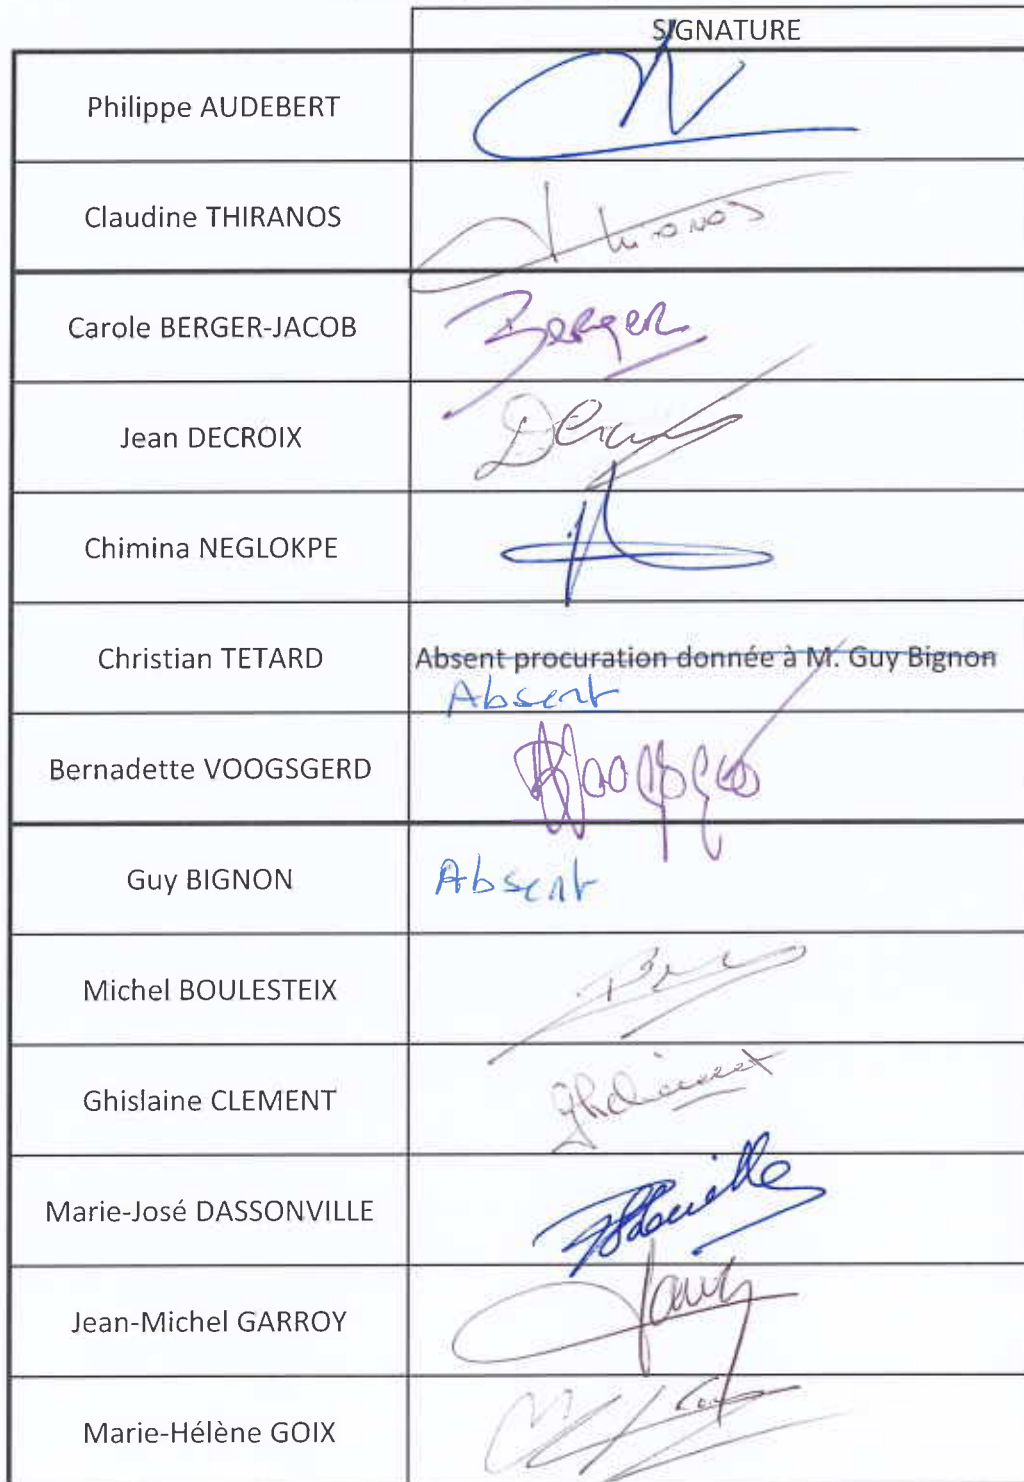 SIGNATURE
Philippe AUDEBERT
Claudine THIRANOS Thiranos
Carole BERGER-JACOB Berger
Jean DECROIX
Chimina NEGLOKPE
Christian TETARD Absent procuration donnée à M. Guy Bignon
Absent
Bernadette VOOGSGERD
Guy BIGNON Absent
Michel BOULESTEIX
Ghislaine CLEMENT
Marie-José DASSONVILLE
Jean-Michel GARROY
Marie-Hélène GOIX